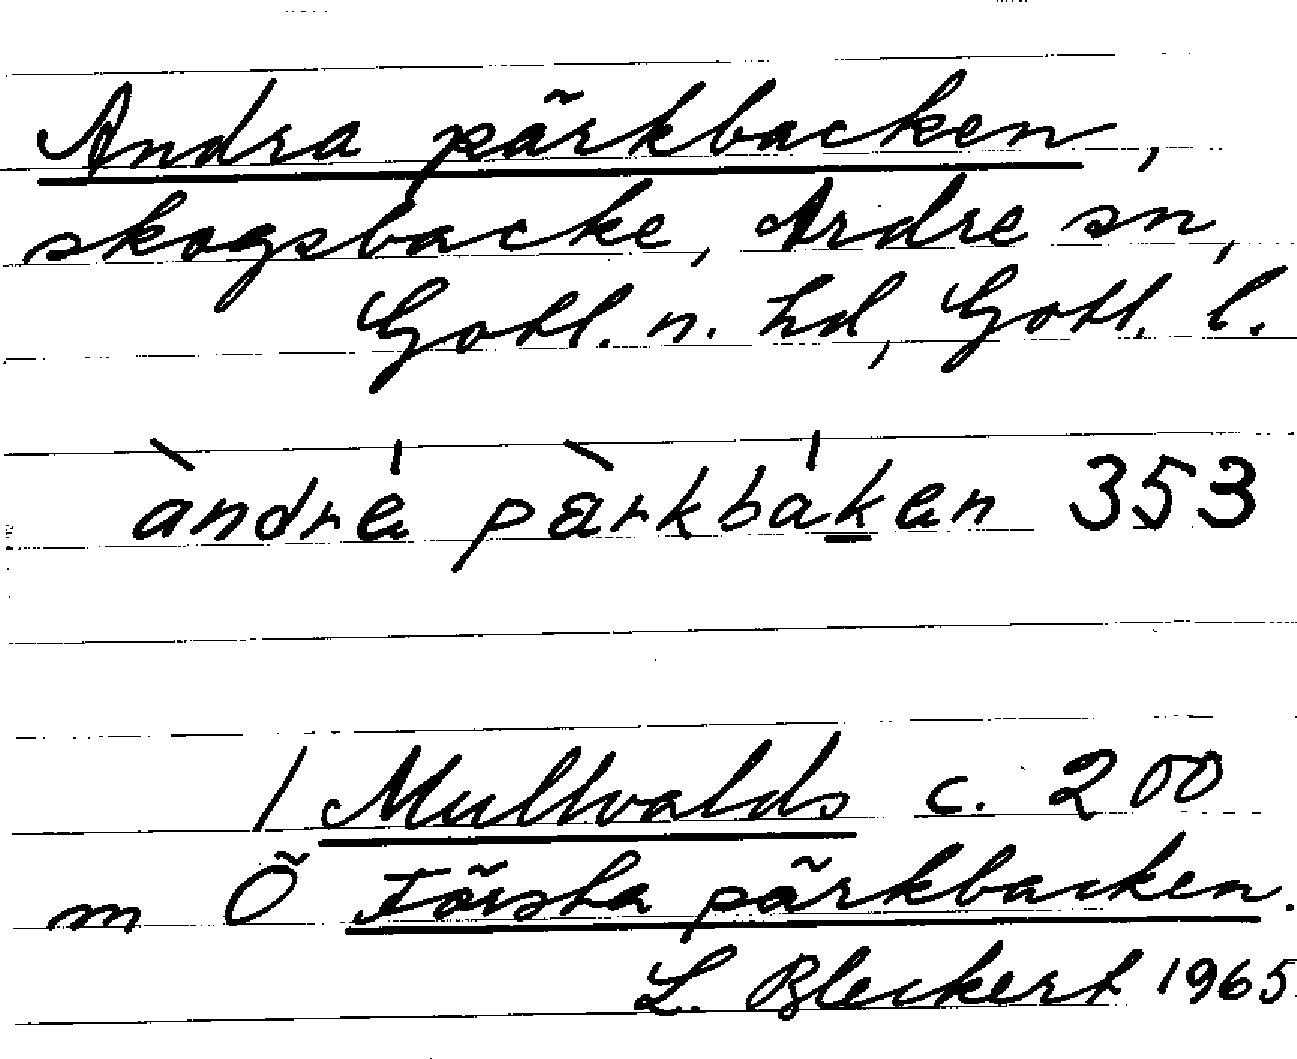 Andra pärkbacken,
skogsbacke, Ardre sn,
Gotl. n. hd, Gotl. l.
àndrá pàrkbáken 353
/ Mullvalds c. 200
m Ö Första pärkbacken.
L. Bleckert 1965